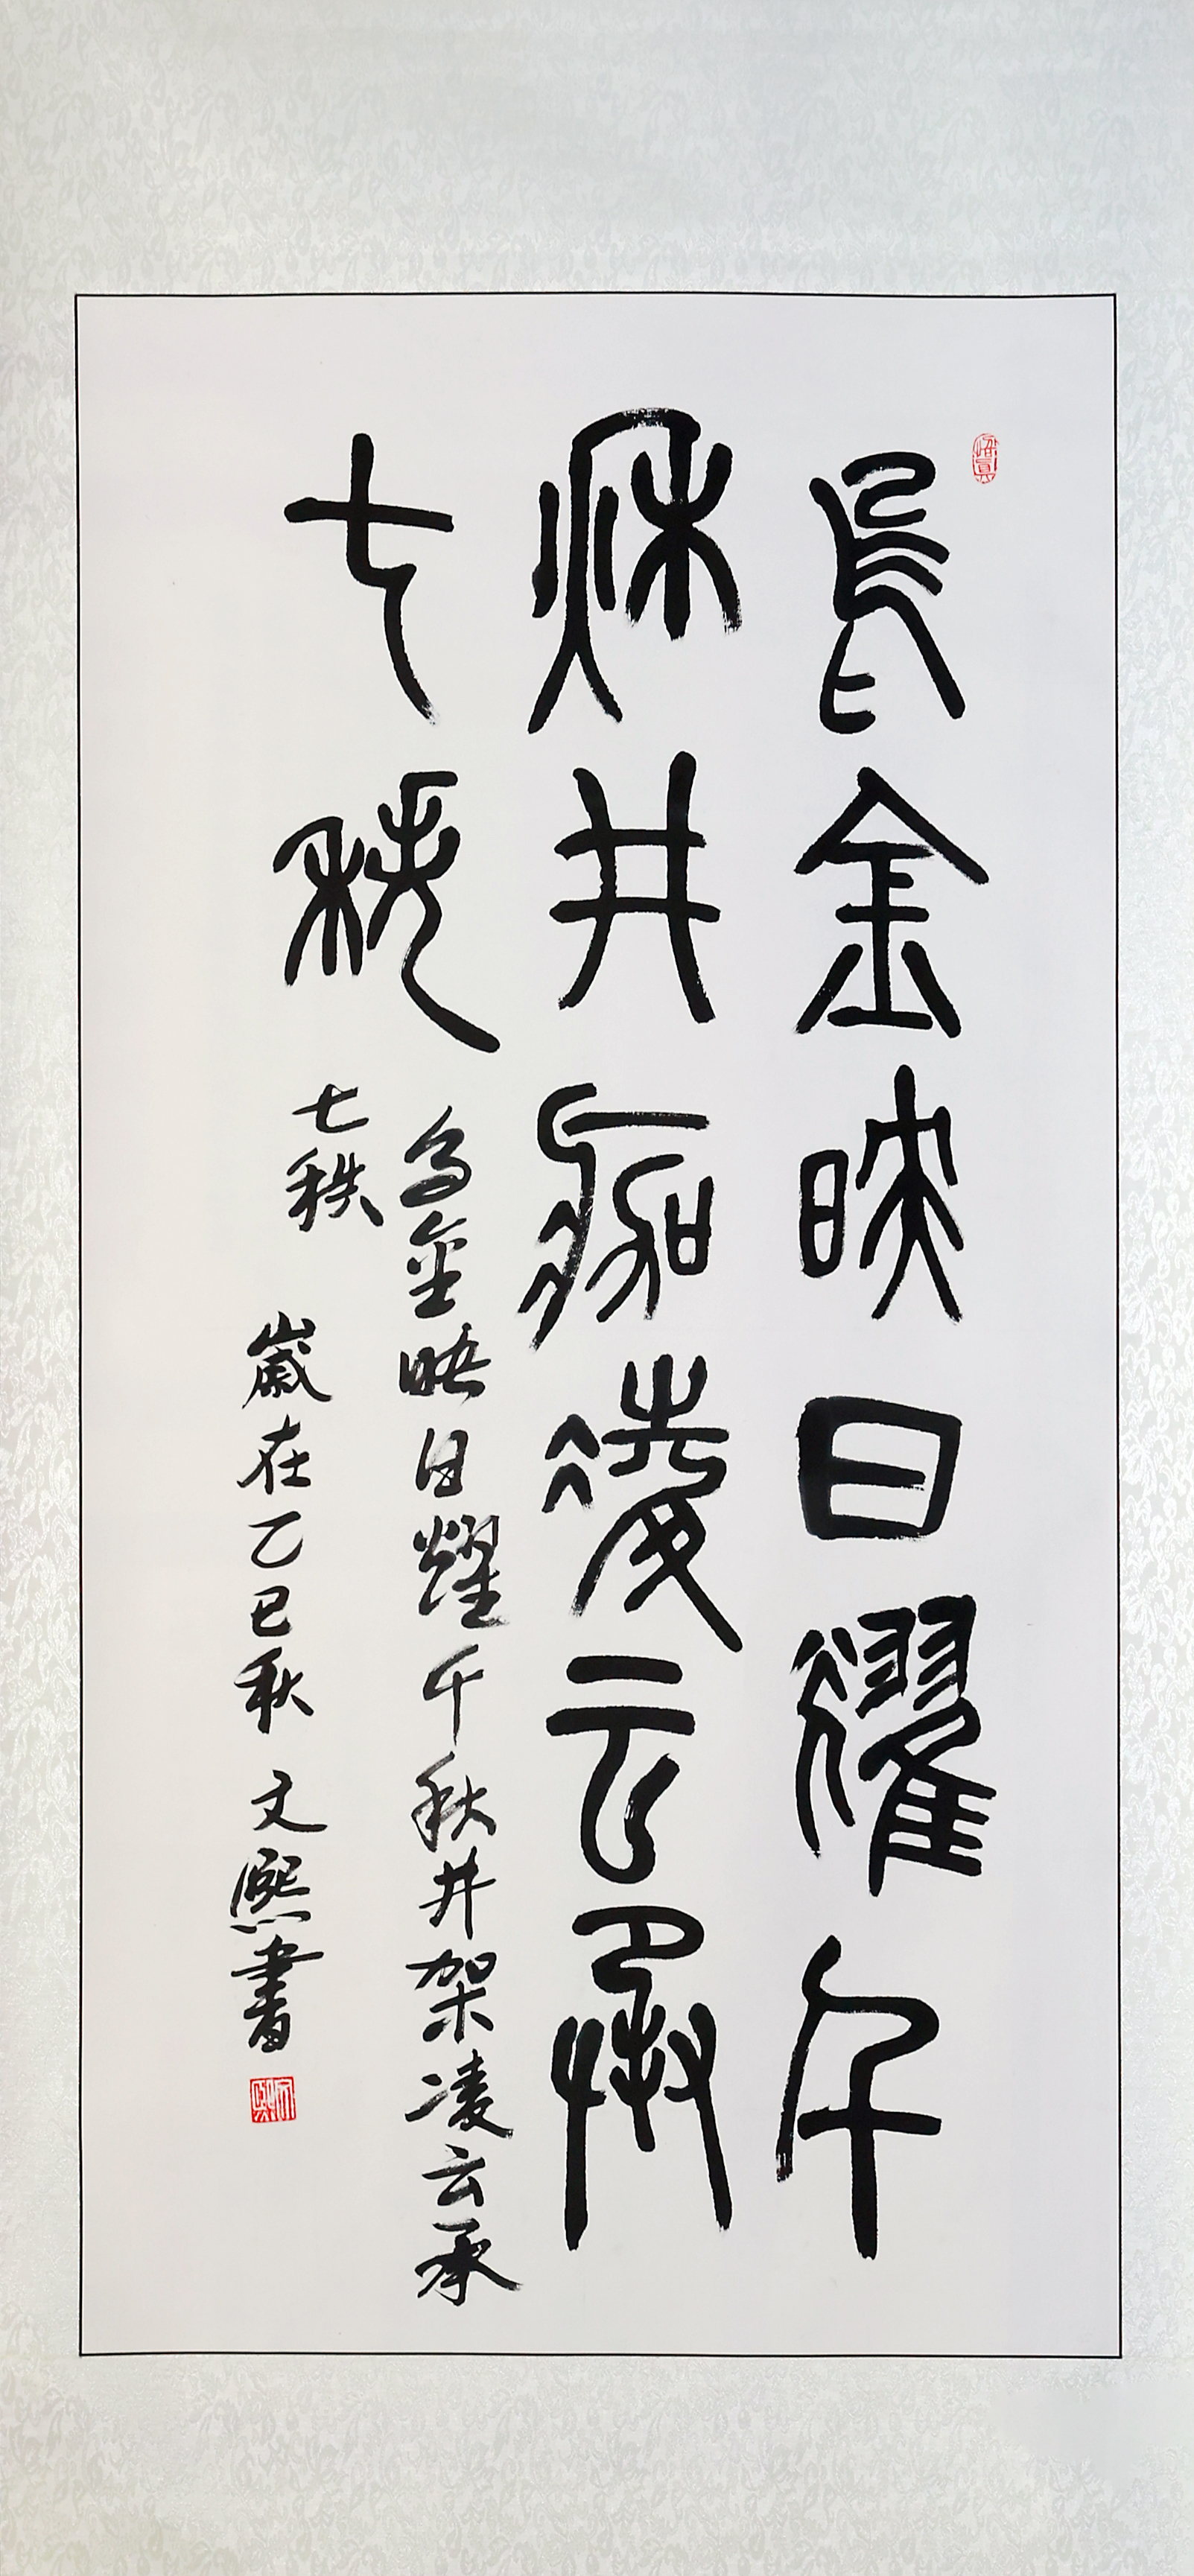 烏金映日耀千
秋井架凌云承
七秩
乌金映日耀千秋井架凌云承
七秩
歲在乙巳秋 文熙書